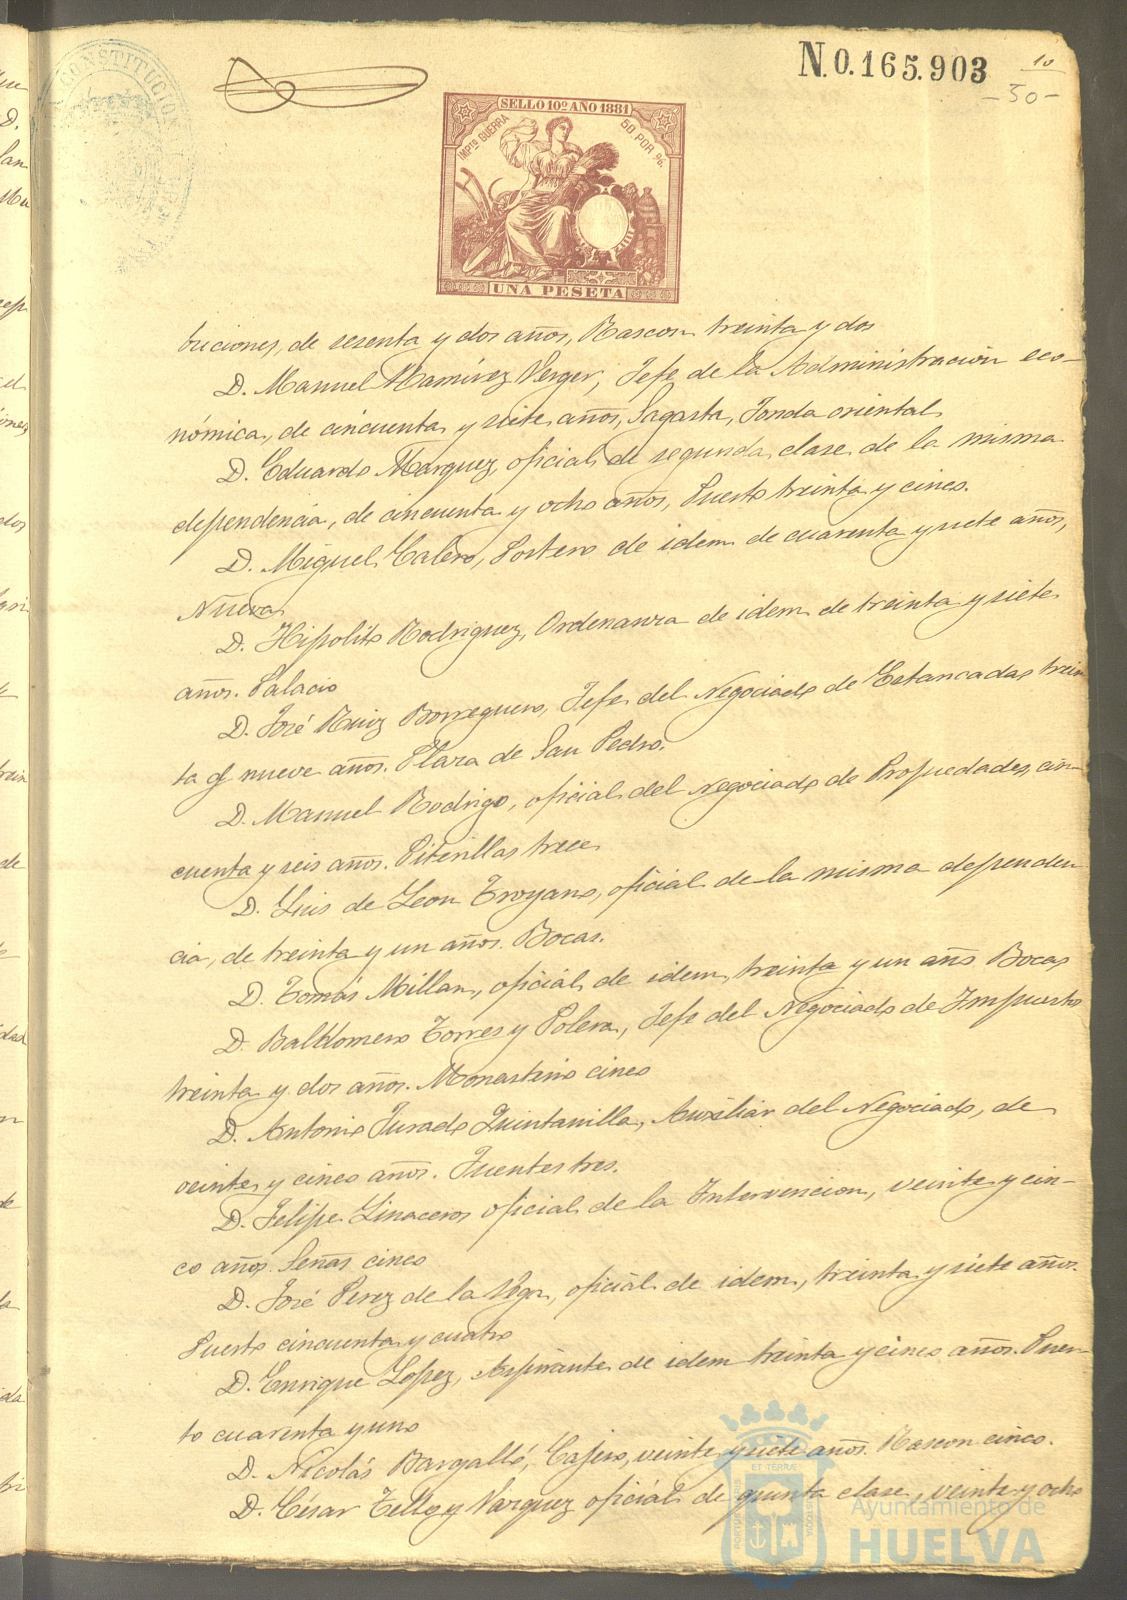 N.0.165.903
10
-50-
CONSTITUCION
SELLO 10º AÑO 1881
MPTO GUERRA
50 POR %.
UNA PESETA
buciones, de sesenta y dos años, Rascon treinta y dos
D. Manuel Ramirez Verger, Jefe de la Administración eco-
nómica, de cincuenta y siete años, Sagasta, Fonda oriental
D. Eduardo Marquez, oficial de segunda clase de la misma
dependencia, de cincuenta y ocho años, Puerto treinta y cinco.
D. Miguel Calero, Portero de idem de cuarenta y siete años,
Nueva
D. Hipolito Rodriguez, Ordenanza de idem de treinta y siete
años. Palacio
D. José Ruiz Borreguero, Jefe del Negociado de Estancadas trein
ta y nueve años. Plaza de San Pedro.
D. Manuel Rodrigo, oficial del Negociado de Propiedades, cin-
cuenta y seis años. Piterillas trece
D. Luis de Leon Troyano, oficial de la misma dependen
cia, de treinta y un años. Bocas.
D. Tomás Millan, oficial de idem, treinta y un año Bocas
D. Baldomero Torres y Polera, Jefe del Negociado de Impuesto
treinta y dos años. Monasterio cinco
D. Antonio Jurado Quintanilla, Auxiliar del Negociado, de
veinte y cinco años. Fuentes tres.
D. Felipe Linaceros oficial de la Intervencion, veinte y cin-
co años. Señas cinco
D. José Perez de la Vega, oficial de idem, treinta y siete años.
Puerto cincuenta y cuatro
D. Enrique Lopez, Aspirante de idem treinta y cinco años. Puer
to cuarenta y uno
D. Nicolás Bargalló, Cajero, veinte y siete años. Rascon cinco.
D. César Tello y Vazquez oficial de quinta clase, veinte y ocho
ET TERRÆ
Ayuntamiento de
HUELVA